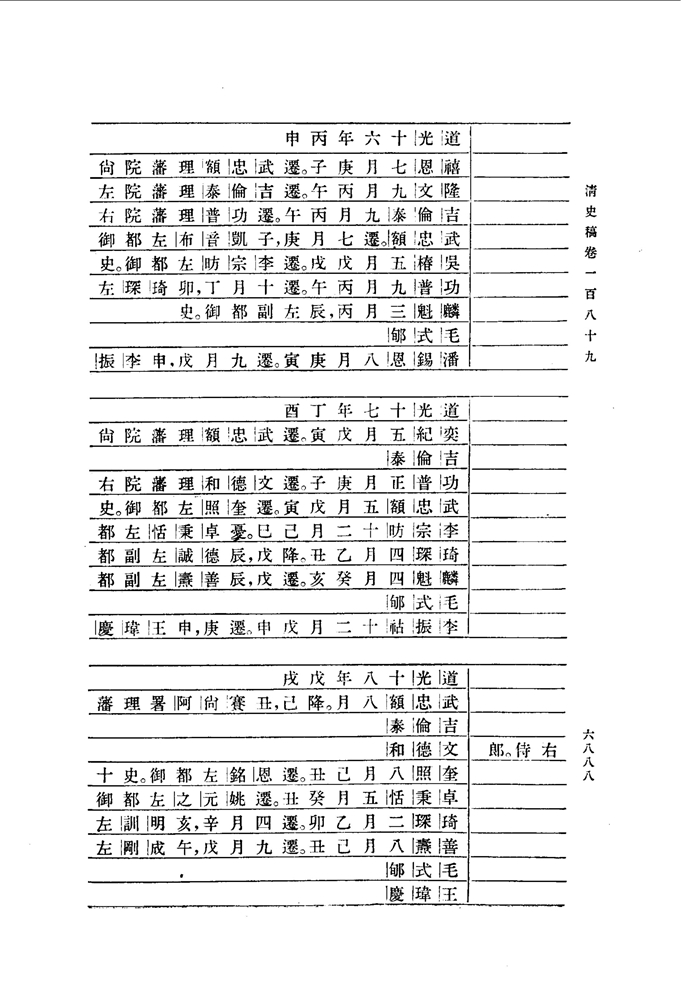 清史稿卷一百八十九
道光十六年丙申
禧恩七月庚子遷。武忠額理藩院尙
隆文九月丙午遷。吉倫泰理藩院左
吉倫泰九月丙午遷。功普理藩院右
武忠額遷。七月庚子,凱音布左都御
吳椿五月戊戌遷。李宗昉左都御史。
功普九月丙午遷。十月丁卯,琦琛左
麟魁三月丙辰,左副都御史。
毛式郇
潘錫恩八月庚寅遷。九月戊申,李振
道光十七年丁酉
奕紀五月戊寅遷。武忠額理藩院尙
吉倫泰
功普正月庚子遷。文德和理藩院右
武忠額五月戊寅遷。奎照左都御史。
李宗昉十二月己巳憂。卓秉恬左都
琦琛四月乙丑降。戊辰,德誠左副都
麟魁四月癸亥遷。戊辰,善燾左副都
毛式郇
李振祜十二月戊申遷。庚申,王瑋慶
道光十八年戊戌
武忠額八月降。己丑,賽尙阿署理藩
吉倫泰
右侍郎。文德和
奎照八月己丑遷。恩銘左都御史。十
卓秉恬五月癸丑遷。姚元之左都御
琦琛二月乙卯遷。四月辛亥,明訓左
善燾八月己丑遷。九月戊午,成剛左
毛式郇
王瑋慶
六八八八